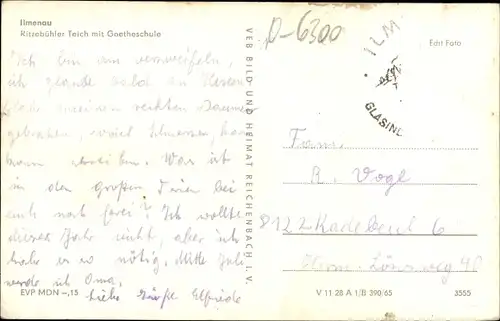 Ilmenau
Ritzebühler Teich mit Goetheschule
Ich bin am verzweifeln,
ich glaube bald an
meinen rechten Daumen
gebrochen, soviel Schmerzen, kann
kaum schreiben. Was ist
in den großen Ferien bei
euch noch frei? Ich wollte
dieses Jahr nicht, aber ich
habe es so nötig. Mitte Juli
werde ich Oma.
liebe Grüße Elfriede
EVP MDN –,15
VEB BILD UND HEIMAT REICHENBACH I. V.
D-6300
ILM
GLASIN
Edit Foto
Fam.
R. Vogl
8122 Radebeul 6
Herm. Löns weg
V 11 28 A 1/B 390/65
3555